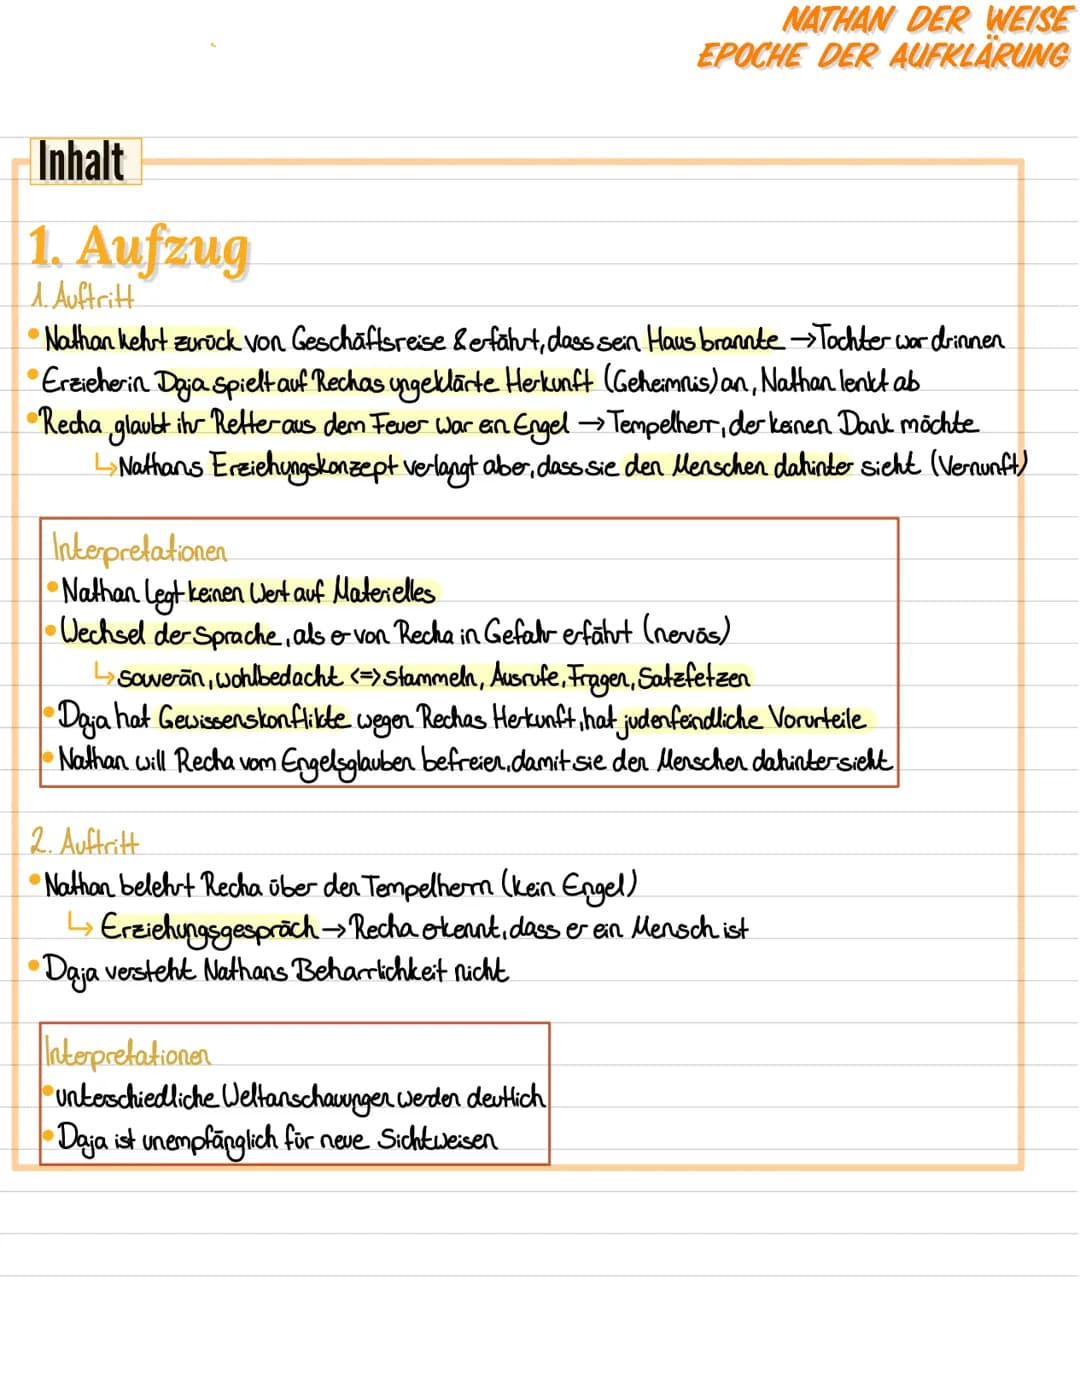 NATHAN DER WEISE
EPOCHE DER AUFKLÄRUNG
Inhalt
1. Aufzug
1. Auftritt
• Nathan kehrt zurück von Geschäftsreise & erfährt, dass sein Haus brannte → Tochter war drinnen
• Erzieherin Daja spielt auf Rechas ungeklärte Herkunft (Geheimnis) an, Nathan lenkt ab
• Recha glaubt ihr Retter aus dem Feuer war ein Engel → Tempelherr, der keinen Dank möchte
↳ Nathans Erziehungskonzept verlangt aber, dass sie den Menschen dahinter sieht (Vernunft)
Interpretationen
• Nathan legt keinen Wert auf Materielles
• Wechsel der Sprache, als er von Recha in Gefahr erfährt (nervös)
↳ souverän, wohlbedacht <=> stammeln, Ausrufe, Fragen, Satzfetzen
• Daja hat Gewissenskonflikte wegen Rechas Herkunft, hat judenfeindliche Vorurteile
• Nathan will Recha vom Engelsglauben befreien, damit sie den Menschen dahinter sieht
2. Auftritt
• Nathan belehrt Recha über den Tempelherrn (kein Engel)
↳ Erziehungsgespräch → Recha erkennt, dass er ein Mensch ist
• Daja versteht Nathans Beharrlichkeit nicht
Interpretationen
• unterschiedliche Weltanschauungen werden deutlich
• Daja ist unempfänglich für neue Sichtweisen